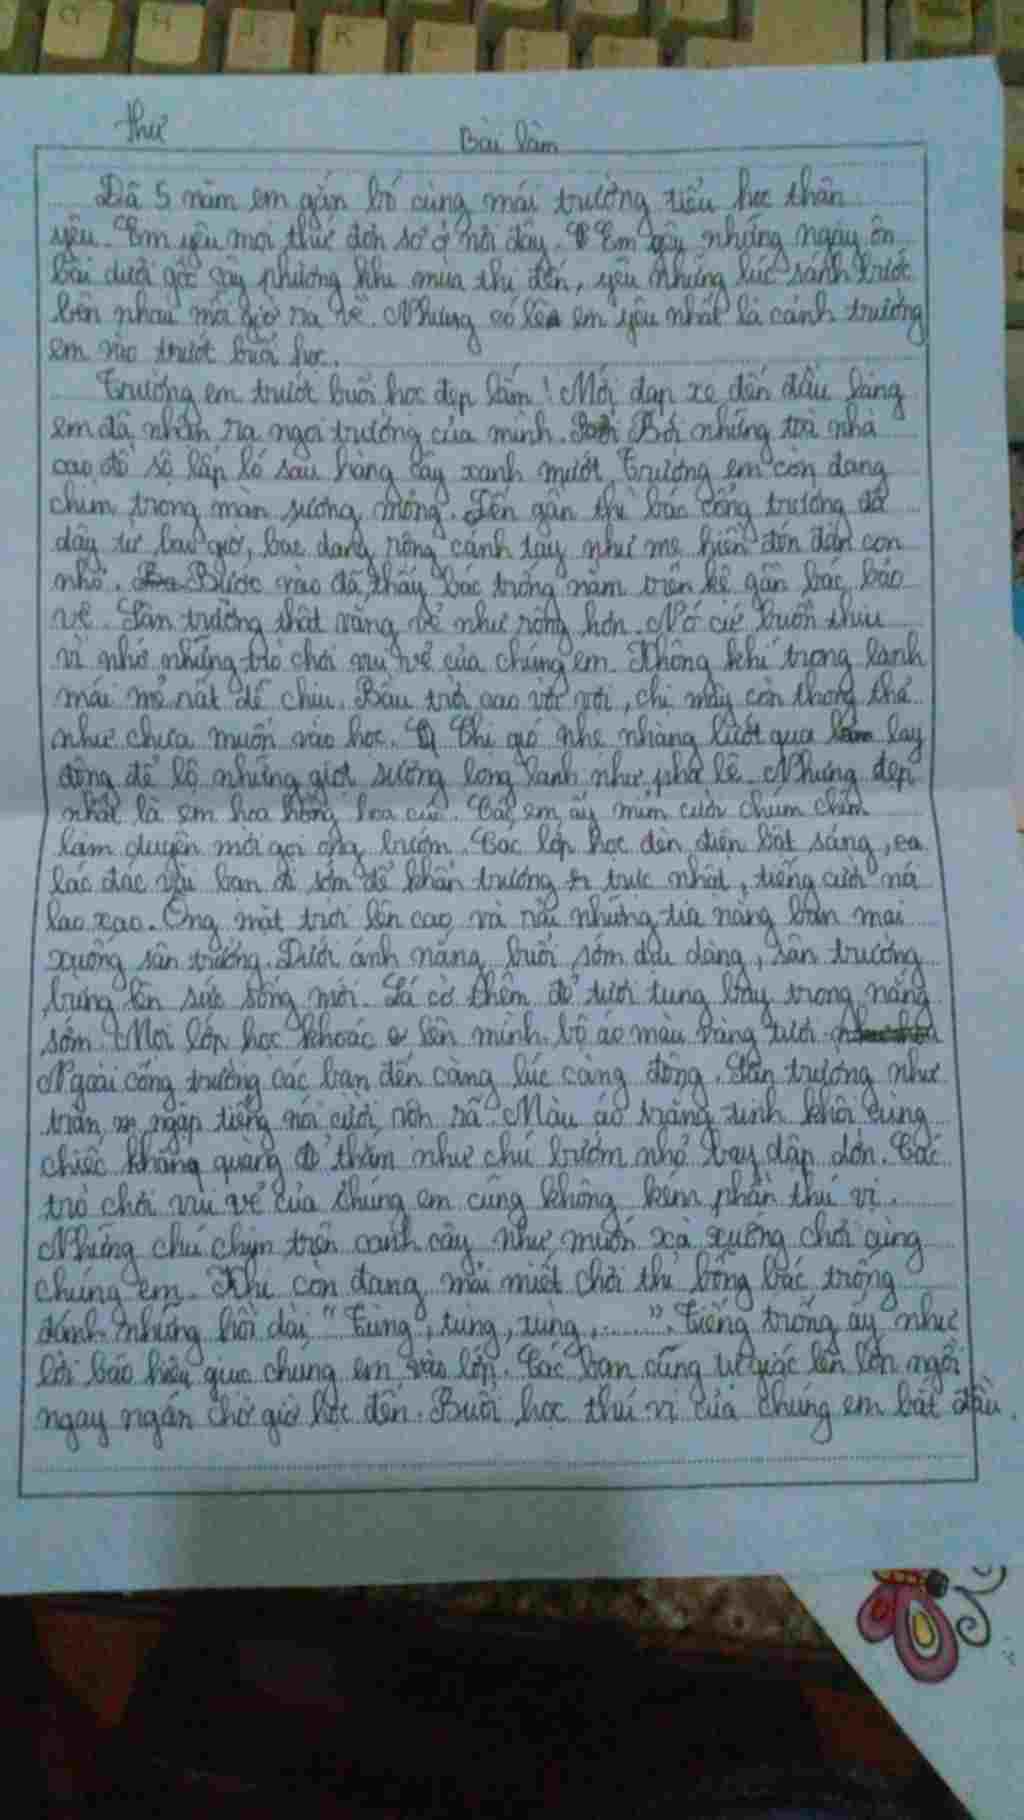 Thư
Bài làm
Đã 5 năm em gắn bó cùng mái trường tiểu học thân
yêu. Em yêu mọi thứ đơn sơ ở nơi đây. Em yêu những ngày ôn
bài dưới gốc cây phượng khi mùa thi đến, yêu những lúc sánh bước
bên nhau mỗi giờ ra về. Nhưng có lẽ em yêu nhất là cảnh trường
em vào trước buổi học.
Trường em trước buổi học đẹp lắm! Mới đạp xe đến đầu làng
em đã nhận ra ngôi trường của mình. Bởi những toà nhà
cao đồ sộ lấp ló sau hàng cây xanh mướt. Trường em còn đang
chìm trong màn sương mỏng. Đến gần thì bác cổng trường đã
dậy từ bao giờ, bác dang rộng cánh tay như mẹ hiền đón đàn con
nhỏ. Bước vào đã thấy bác trống nằm trên kệ gần bác bảo
vệ. Sân trường thật vắng vẻ như rộng hơn. Nó cứ buồn thiu
vì nhớ những trò chơi vui vẻ của chúng em. Không khí trong lành
mát mẻ rất dễ chịu. Bầu trời cao vời vợi, chị mây còn thong thả
như chưa muốn vào học. Chị gió nhẹ nhàng lướt qua lay
động để lộ những giọt sương long lanh như pha lê. Nhưng đẹp
nhất là em hoa hồng hoa cúc. Các em ấy mỉm cười chúm chím
làm duyên mời gọi ong bướm. Các lớp học đèn điện bật sáng,
lác đác vài bạn đi sớm để khẩn trương trực nhật, tiếng cười nói
lao xao. Ông mặt trời lên cao và rải những tia nắng ban mai
xuống sân trường. Dưới ánh nắng buổi sớm dịu dàng, sân trường
bừng lên sức sống mới. Lá cờ thêm đỏ tươi tung bay trong nắng
sớm. Mọi lớp học khoác lên mình bộ áo màu vàng tươi
Ngoài cổng trường các bạn đến càng lúc càng đông. Sân trường như
tràn ngập tiếng nói cười rôm rả. Màu áo trắng tinh khôi cùng
chiếc khăng quàng đỏ thắm như chú bướm nhỏ bay dập dờn. Các
trò chơi vui vẻ của chúng em cũng không kém phần thú vị.
Những chú chim trên cành cây như muốn xà xuống chơi cùng
chúng em. Khi còn đang mải miết chơi thì bỗng bác trống
đánh những hồi dài "Tùng, tùng, tùng,........". Tiếng trống ấy như
lời báo hiệu giục chúng em vào lớp. Các bạn cũng lên lớp ngồi
ngay ngắn chờ giờ học đến. Buổi học thú vị của chúng em bắt đầu.